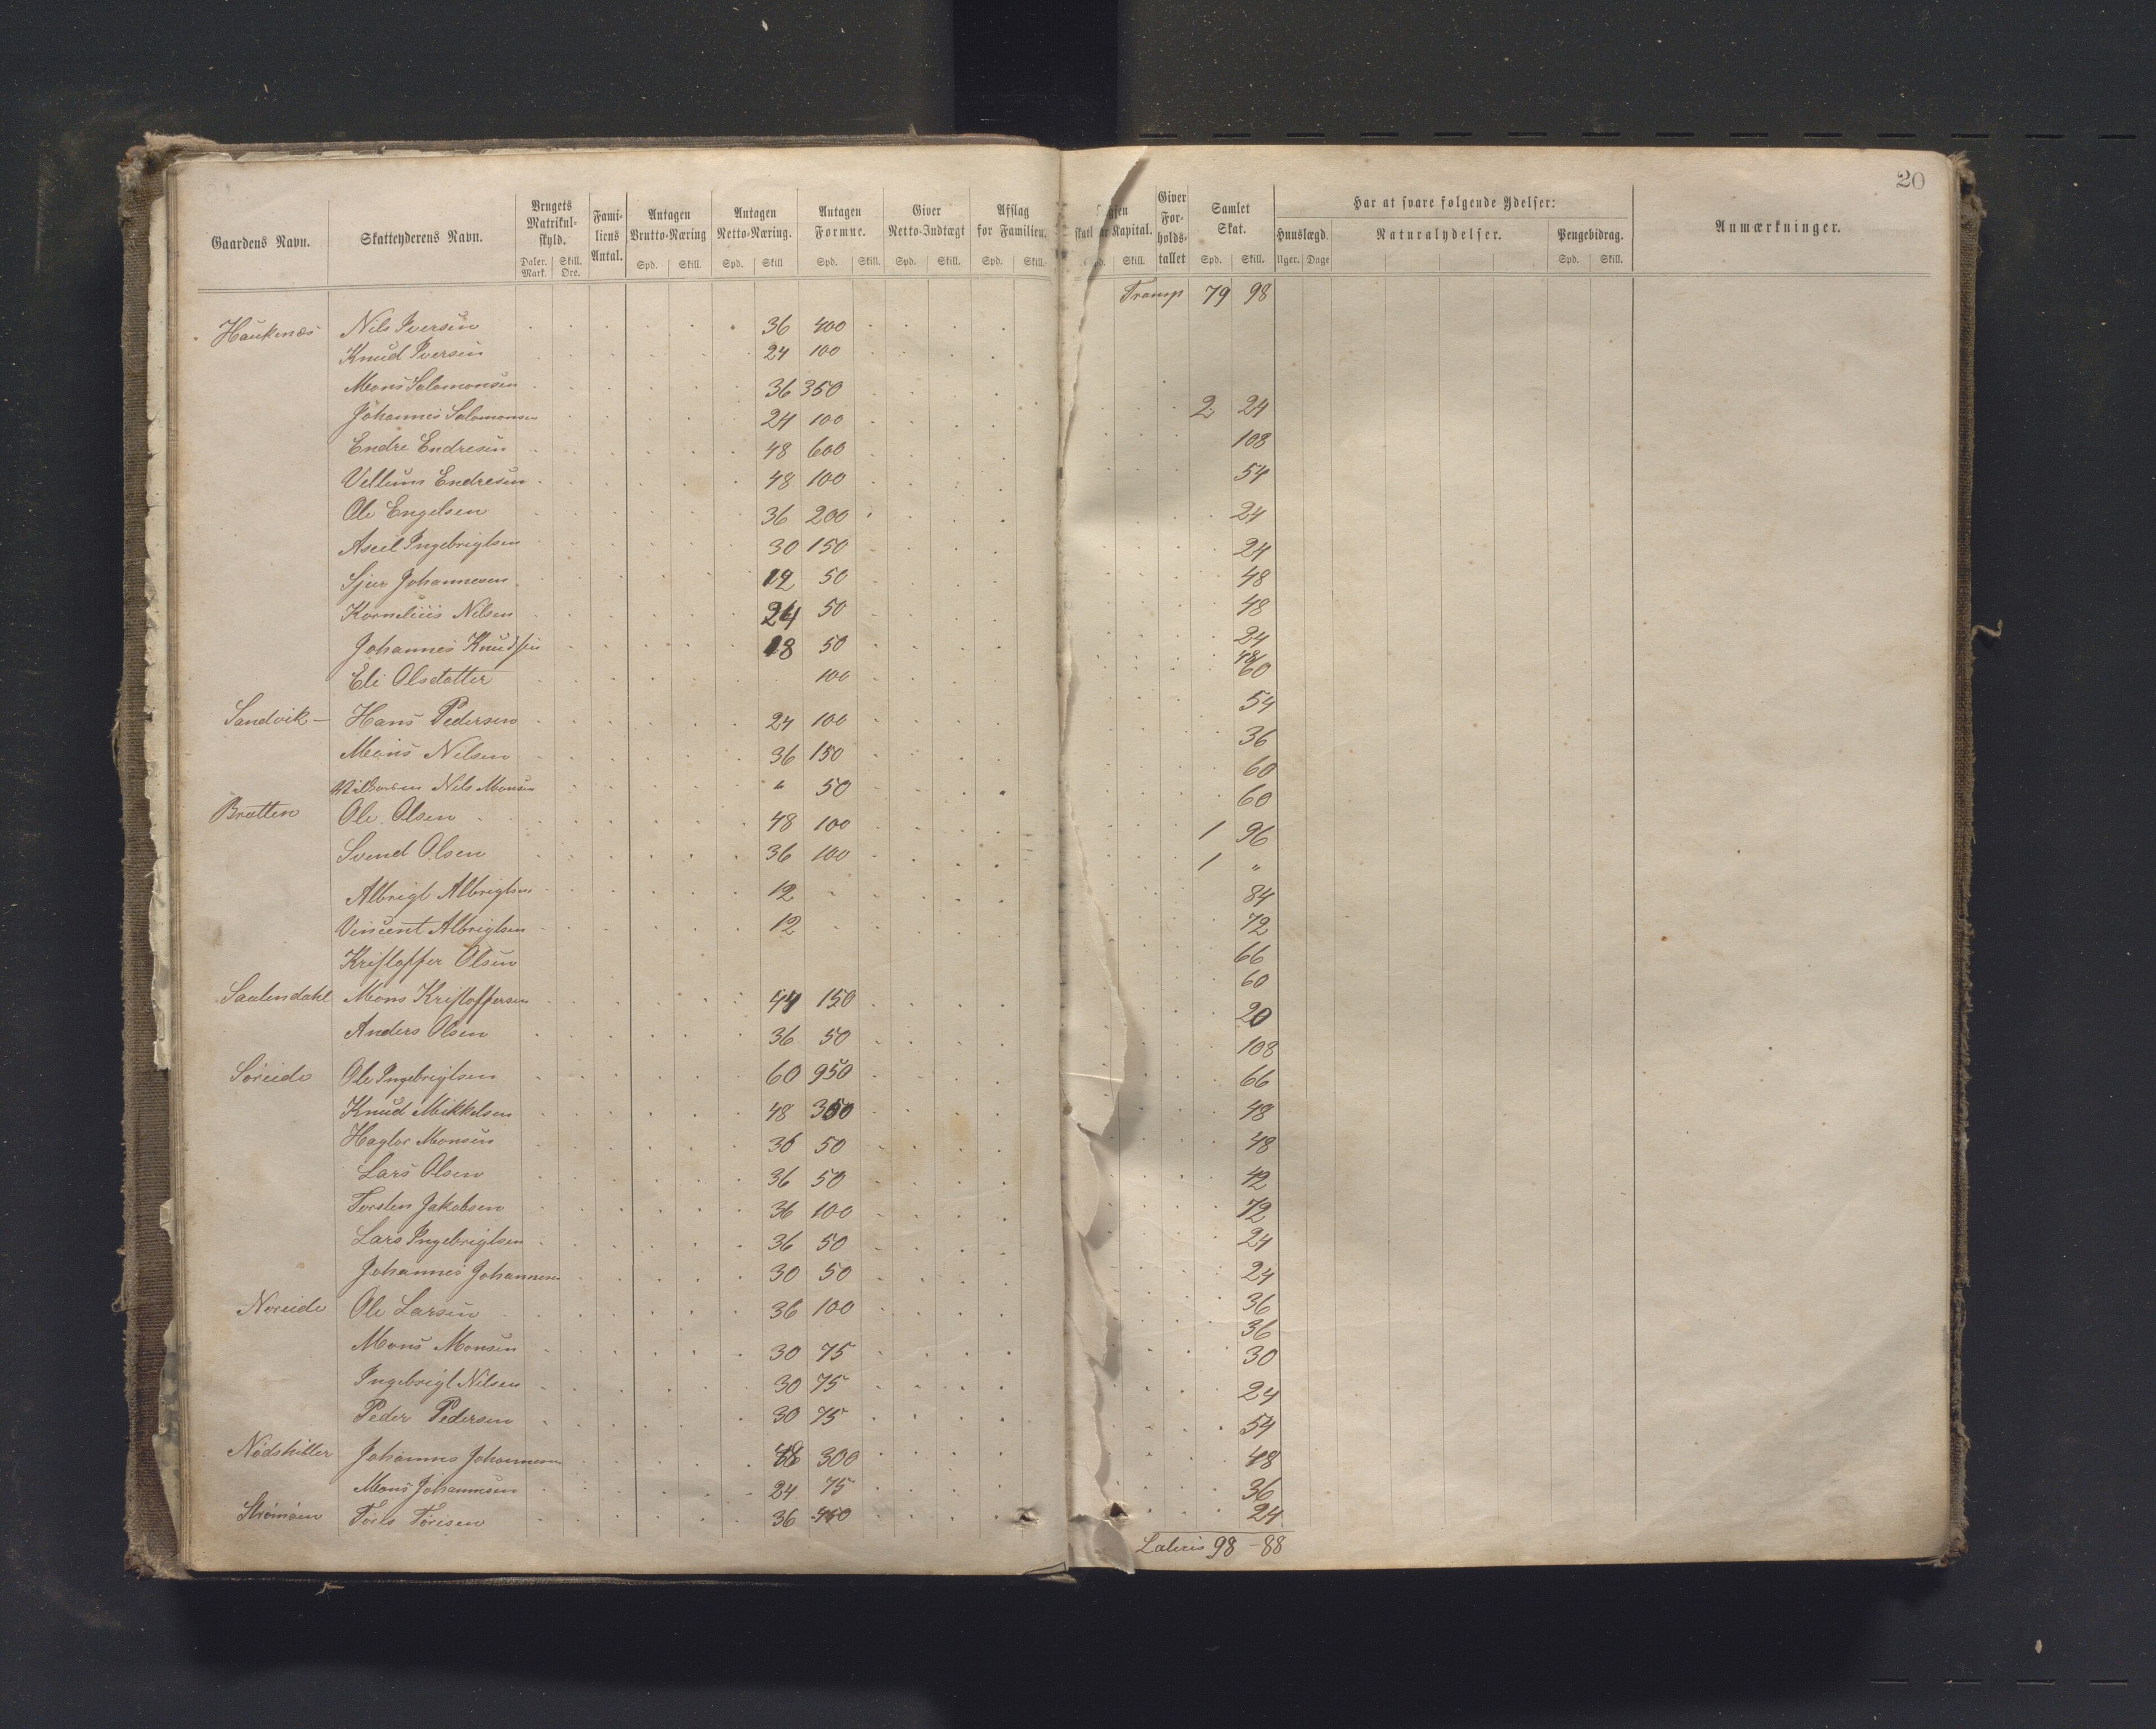 20
Gaardens Navn. Skatteyderens Navn. Brugets Matrikulskyld. Familiens Antal. Antagen Brutto-Næring Antagen Netto-Næring. Antagen Formue. Giver Netto-Indtægt Afslag for Familien. Kapital. Giver Forholdstallet Samlet Skat. Har at svare følgende Ydelser: Anmærkninger.
Hunslægd. Naturalydelser. Pengebidrag.
Daler. Mark. Skill. Øre. Spd. Skill. Spd. Skill Spd. Skill. Spd. Skill. Spd. Skill. Skill. Spd. Skill. Uger. Dage Spd. Skill.
Transp 79 98
Haukenæs Nils Iversen 36 400
Knud Iversen 24 100
Mons Salomonsen 36 350
Johannes Salomonsen 24 100
Endre Endresen 48 600
Vellum Endresen 48 100
Ole Engelsen 36 200
Aseil Ingebrigtsen 30 150
Sjur Johannesen 12 50
Kornelius Nilsen 24 50
Johannes Knudsen 18 50
Eli Olsdatter 100
Sandvik - Hans Pedersen 24 100
Mons Nilsen 36 150
Nils Monsen " 50
Bratten Ole Olsen 48 100
Svend Olsen 36 100
Albrigt Albrigtsen 12
Vincent Albrigtsen 12
Kristoffer Olsen
Saalendahl Mons Kristoffersen 44 150
Anders Olsen 36 50
Søreide Ole Ingebrigtsen 60 950
Knud Mikkelsen 48 350
Haglor Monsen 36 50
Lars Olsen 36 50
Torsten Jakobsen 36 100
Lars Ingebrigtsen 36 50
Johannes Johannesen 30 50
Noreide Ole Larsen 36 100
Mons Monsen 30 75
Ingebrigt Nilsen 30 75
Peder Pedersen 30 75
Nødshilter Johannes Johannesen 48 300
Mons Johannesen 24 75
Strømøen Torris Torisen 36 450
2 24
108
54
24
24
48
48
24
48
60
54
36
60
60
1 96
1 "
84
72
66
60
20
108
66
48
48
42
72
24
24
36
36
30
24
54
48
36
24
Lateris 98 - 88